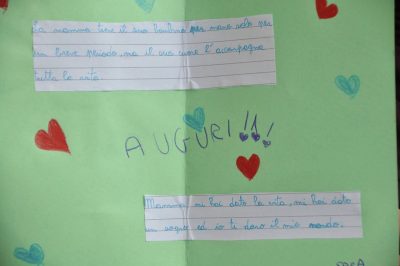 La mamma tiene il suo bambino per mano solo per
un breve periodo, ma il suo cuore l'accompagna
tutta la vita.
AUGURI!!!
Mamma, mi hai dato la vita, mi hai dato
un sogno ed io ti dono il mio mondo.